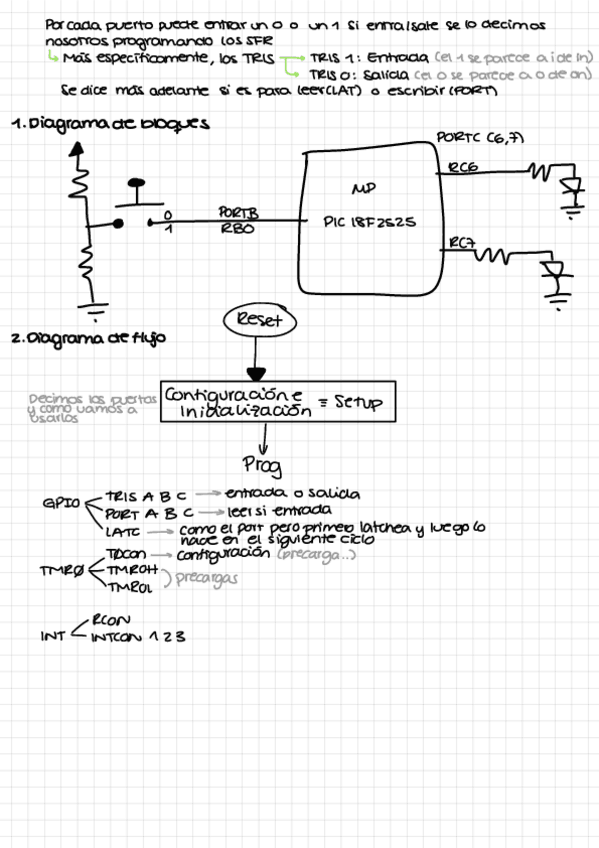 Por cada puerto puede entrar un 0 o un 1 si entra/sale se lo decimos
nosotros programando los SFR
Más específicamente, los TRIS → TRIS 1: Entrada (el 1 se parece a i de In)
TRIS 0: Salida (el 0 se parece a o de on)
Se dice más adelante si es para leer (LAT) o escribir (PORT)
1. Diagrama de bloques
PORTC (6,7)
RC6
MP
0 PORTB
PIC 18F2525
1 RB0
RC7
Reset
2. Diagrama de flujo
Decimos los puertos
y como vamos a
usarlos
Configuración e
Inicialización = Setup
Prog
GPIO
TRIS A B C → entrada o salida
PORT A B C → leer si entrada
LATC → como el port pero primero latchea y luego lo
hace en el siguiente ciclo
TMR0
T0con → configuración (precarga..)
TMR0H
TMR0L
precargas
INT
RCON
INTCON 1 2 3